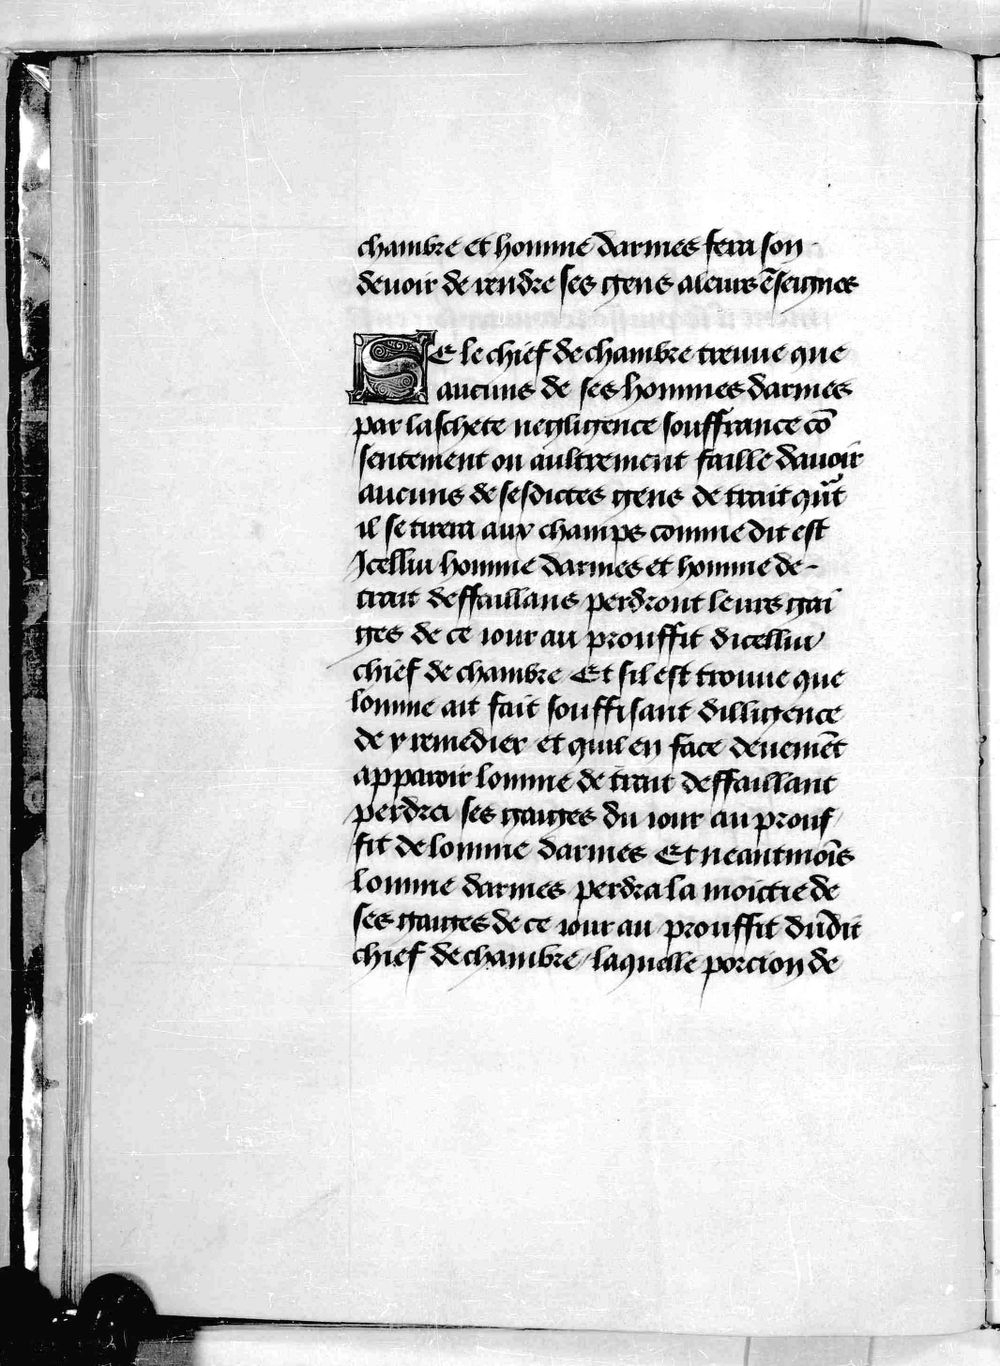 chambre et homme darmes fera son
deuoir de rendre ses gens aleurs ẽseignes
SE le chief de chambre treuue que
aucuns de ses hommes darmes
par laschete negligence souffrance cõ
sentement ou aultrement faille dauoir
aucuns de sesdictes gens de trait qũt
il se tirera aux champs comme dit est
Icellui homme darmes et homme de-
trait deffaillans perdront leurs gai
ges de ce iour au prouffit dicellui
chief de chambre Et sil est trouue que
lomme ait fait souffisant dilligence
de y remedier et quil en face deuemẽt
apparoir lomme de trait deffaillant
perdra ses gaiges du iour au prouf/
fit de lomme darmes Et neantmoĩs
lomme darmes perdra la moictie de
ses gaiges de ce iour au prouffit dudit
chief de chambre / laquelle porcion de